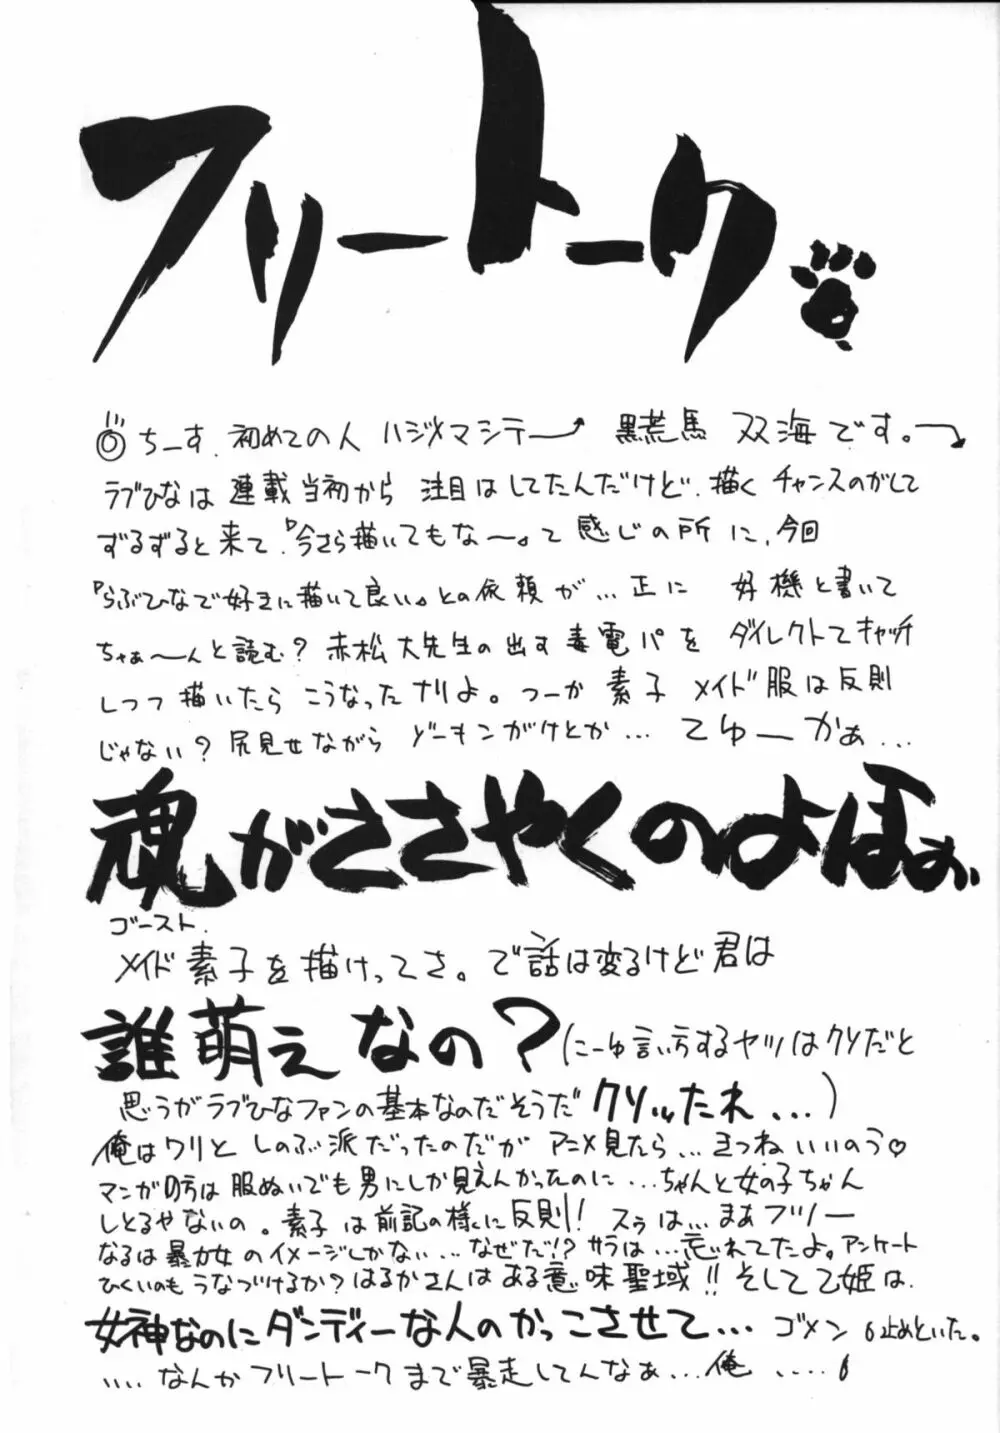 フリートーク
ちーす.初めての人 ハジメマシテー 黒荒馬 双海です。
ラブひなは 連載当初から 注目はしてたんだけど.描く チャンスのがして
ずるずると来て.『今さら描いてもな〜。』て感じの所に、今回
『らぶひなで好きに描いて良い。』との依頼が…正に 好機と書いて
ちゃぁ〜んと読む?赤松大先生の出す毒電パを ダイレクトでキャッチ
しつつ描いたら こうなったナリよ。つーか 素子 メイド服は反則
じゃない?尻見せながら ゾーキンがけとか… てゆーかぁ…
魂がささやくのよほぉ
ゴースト.
メイド素子を描けってさ。で話は変るけど君は
誰萌えなの?(にーゆ言い方するヤツはクソだと
思うがラブひなファンの基本なのだそうだ クソッたれ…)
俺はワリと しのぶ派だったのだが アニメ見たら…きつねいいのう♡
マンガの方は服ぬいでも男にしか見えんかったのに…ちゃんと女の子ちゃん
しとるやないの。素子は前記の様に反則! スゥは…まあフツー
なるは暴力女のイメージしかない…なぜだ!?サラは…忘れてたよ。アンケート
ひくいのもうなづけるか?はるかさんはある意味聖域!!そして乙姫は.
女神なのにダンディーな人のかっこさせて… ゴメン 止めといた。
….なんかフリートークまで暴走してんなぁ…俺 ….